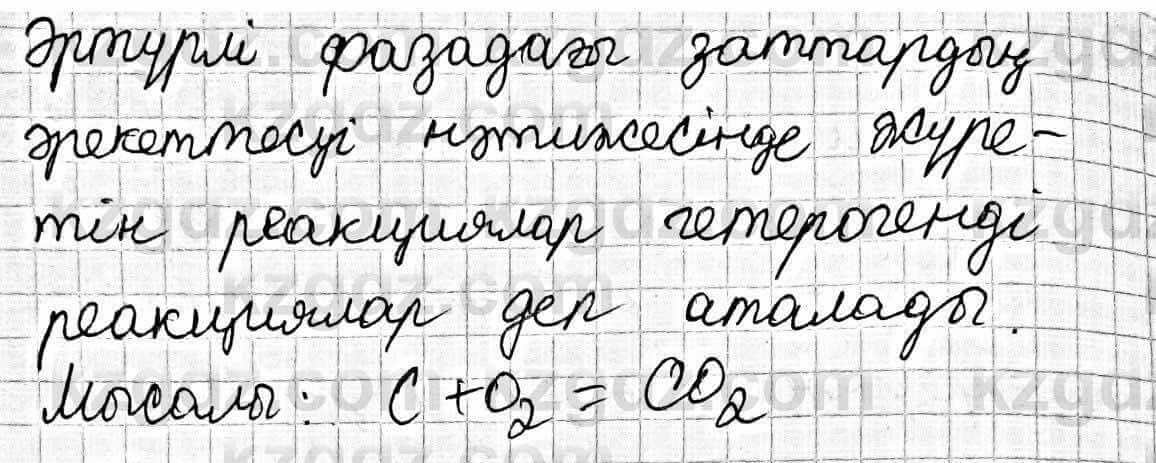 Әртүрлі фазадағы заттардың
әрекеттесуі нәтижесінде жүре-
тін реакциялар гетерогенді
реакциялар деп аталады.
Мысалы: C + O₂ = CO₂
kzgdz.com